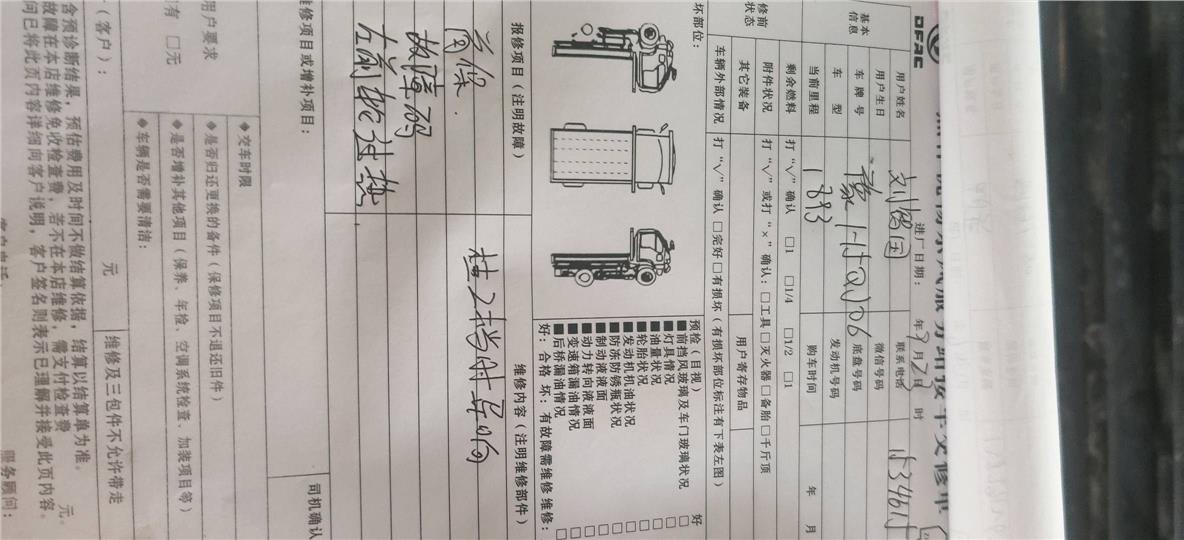 DFAC
进厂日期： 年 月 日 时
基本信息
用户姓名 联系电话 15346
用户生日 微信号码
车牌号 底盘号码
车型 发动机号码
当前里程 1893 购车时间 年 月
修前状态
剩余燃料 打“√”确认 □1 □1/4 □1/2 □1
附件状况 打“√”或打“×”确认：□工具 □灭火器 □备胎 □千斤顶
其它装备 用户寄存物品
车辆外部情况 打“√”确认 □完好 □有损坏（有损坏部位标注有下表左图）
坏部位：
预检（目视） 好
■前挡风玻璃及车门玻璃状况 □
■灯具情况 □
■油量状况 □
■轮胎状况 □
■发动机机油状况 □
■防冻防锈瓶状况 □
■制动液液面 □
■动力转向液液面 □
■变速箱漏油情况 □
■后桥漏油情况 □
好：合格 坏：有故障需维修 维修：
报修项目（注明故障） 维修内容（注明维修部件）
首保.
挂2档时异响
故障码
左前轮过热
维修项目或增补项目： 司机确认
用户要求
有 □无
◆交车时限
◆是否归还更换的备件（保修项目不退还旧件）
◆是否增补其他项目（保养、年检、空调系统检查、加装项目等）
◆车辆是否需要清洁：
（客户）： 元 维修及三包件不允许带走
含预诊断结果，预估费用及时间不做结算依据，结算以结算单为准。
故障在本店维修免收检查费，若不在本店维修，需支付检查费 元。
问已将此页内容详细向客户说明，客户签名则表示已理解并接受此页内容。
服务顾问：